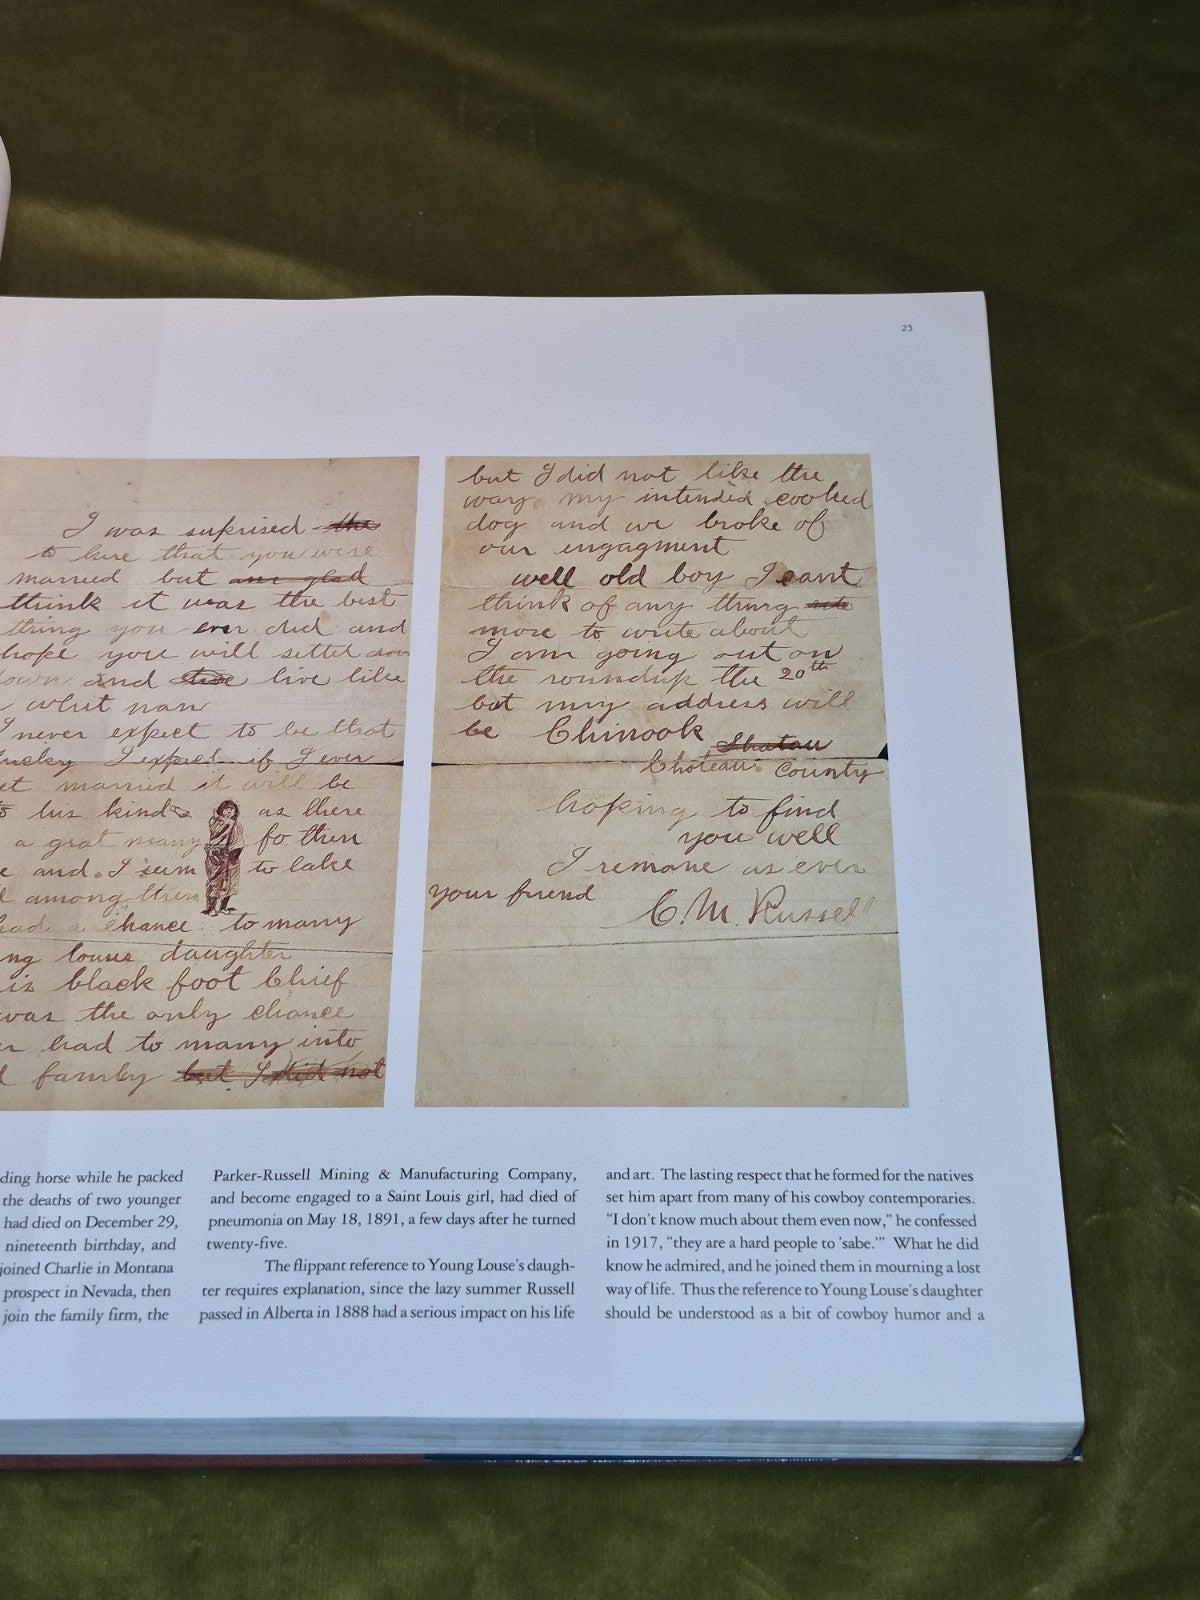 25
I was suprised the
to hare that you were
married but am glad
think it was the best
thing you ever did and
hope you will settel down
own and live like
whit nan
I never expect to be that
lucky I expect if I ever
et married it will be
to his kind as there
a grat many fo them
e and I seem to lake
among them
had a chance to marry
ng louse daughter
is black foot Chief
was the only chance
er had to marry into
family but I did not
but I did not like the
way my intended cooked
dog and we broke of
our engagment
well old boy I cant
think of any thing
more to write about
I am going out on
the roundup the 20th
but my address will
be Chinook Shutau
Choteau County
hoping to find
you well
I remane as ever
your friend C. M. Russell
ding horse while he packed
the deaths of two younger
had died on December 29,
nineteenth birthday, and
joined Charlie in Montana
prospect in Nevada, then
join the family firm, the
Parker-Russell Mining & Manufacturing Company,
and become engaged to a Saint Louis girl, had died of
pneumonia on May 18, 1891, a few days after he turned
twenty-five.
The flippant reference to Young Louse's daugh-
ter requires explanation, since the lazy summer Russell
passed in Alberta in 1888 had a serious impact on his life
and art. The lasting respect that he formed for the natives
set him apart from many of his cowboy contemporaries.
“I don't know much about them even now,” he confessed
in 1917, “they are a hard people to 'sabe.'” What he did
know he admired, and he joined them in mourning a lost
way of life. Thus the reference to Young Louse's daughter
should be understood as a bit of cowboy humor and a